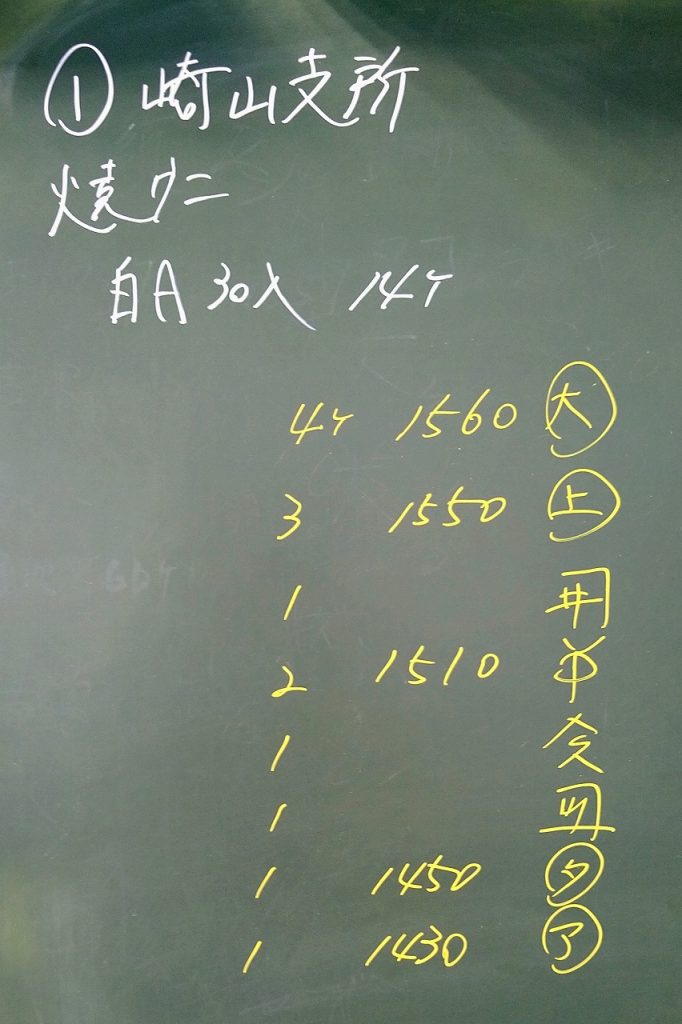 ① 崎山支所
焼ウニ
自A 30入 14ケ
4ケ 1560 大
3 1550 上
1
2 1510
1
1
1 1450 タ
1 1430 了